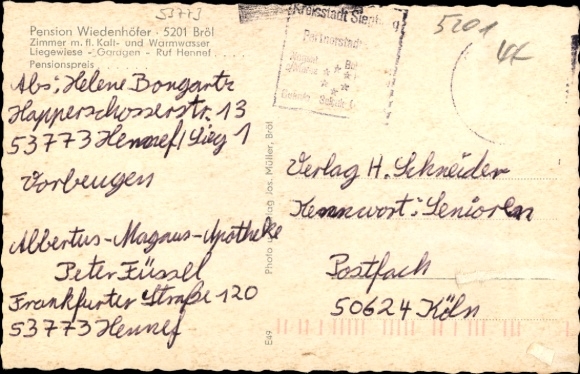 53773
Pension Wiedenhöfer · 5201 Bröl
Zimmer m. fl. Kalt- und Warmwasser
Liegewiese - Garagen - Ruf Hennef
Pensionspreis
Abs.: Helene Bongartz
Happerschosserstr. 13
53773 Hennef/Sieg 1
Vorbeugen
Albertus-Magnus-Apotheke
Peter Füssel
Frankfurter Straße 120
53773 Hennef
Photo u. Verlag Jos. Müller, Bröl
E49
Kreisstadt
Partnerstadt
5201
Verlag H. Schneider
Kennwort: Senioren
Postfach
50624 Köln